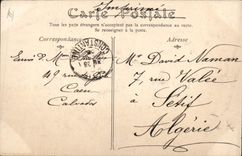 Imprimé
Carte Postale
Tous les pays étrangers n'acceptent pas la correspondance au recto.
Se renseigner à la poste.
Correspondance
Adresse
Envoi de M
49 rue
Caen
Calvados
Mr David Naman
7, rue Valée
à
Sétif
Algérie
CONSTANTINE